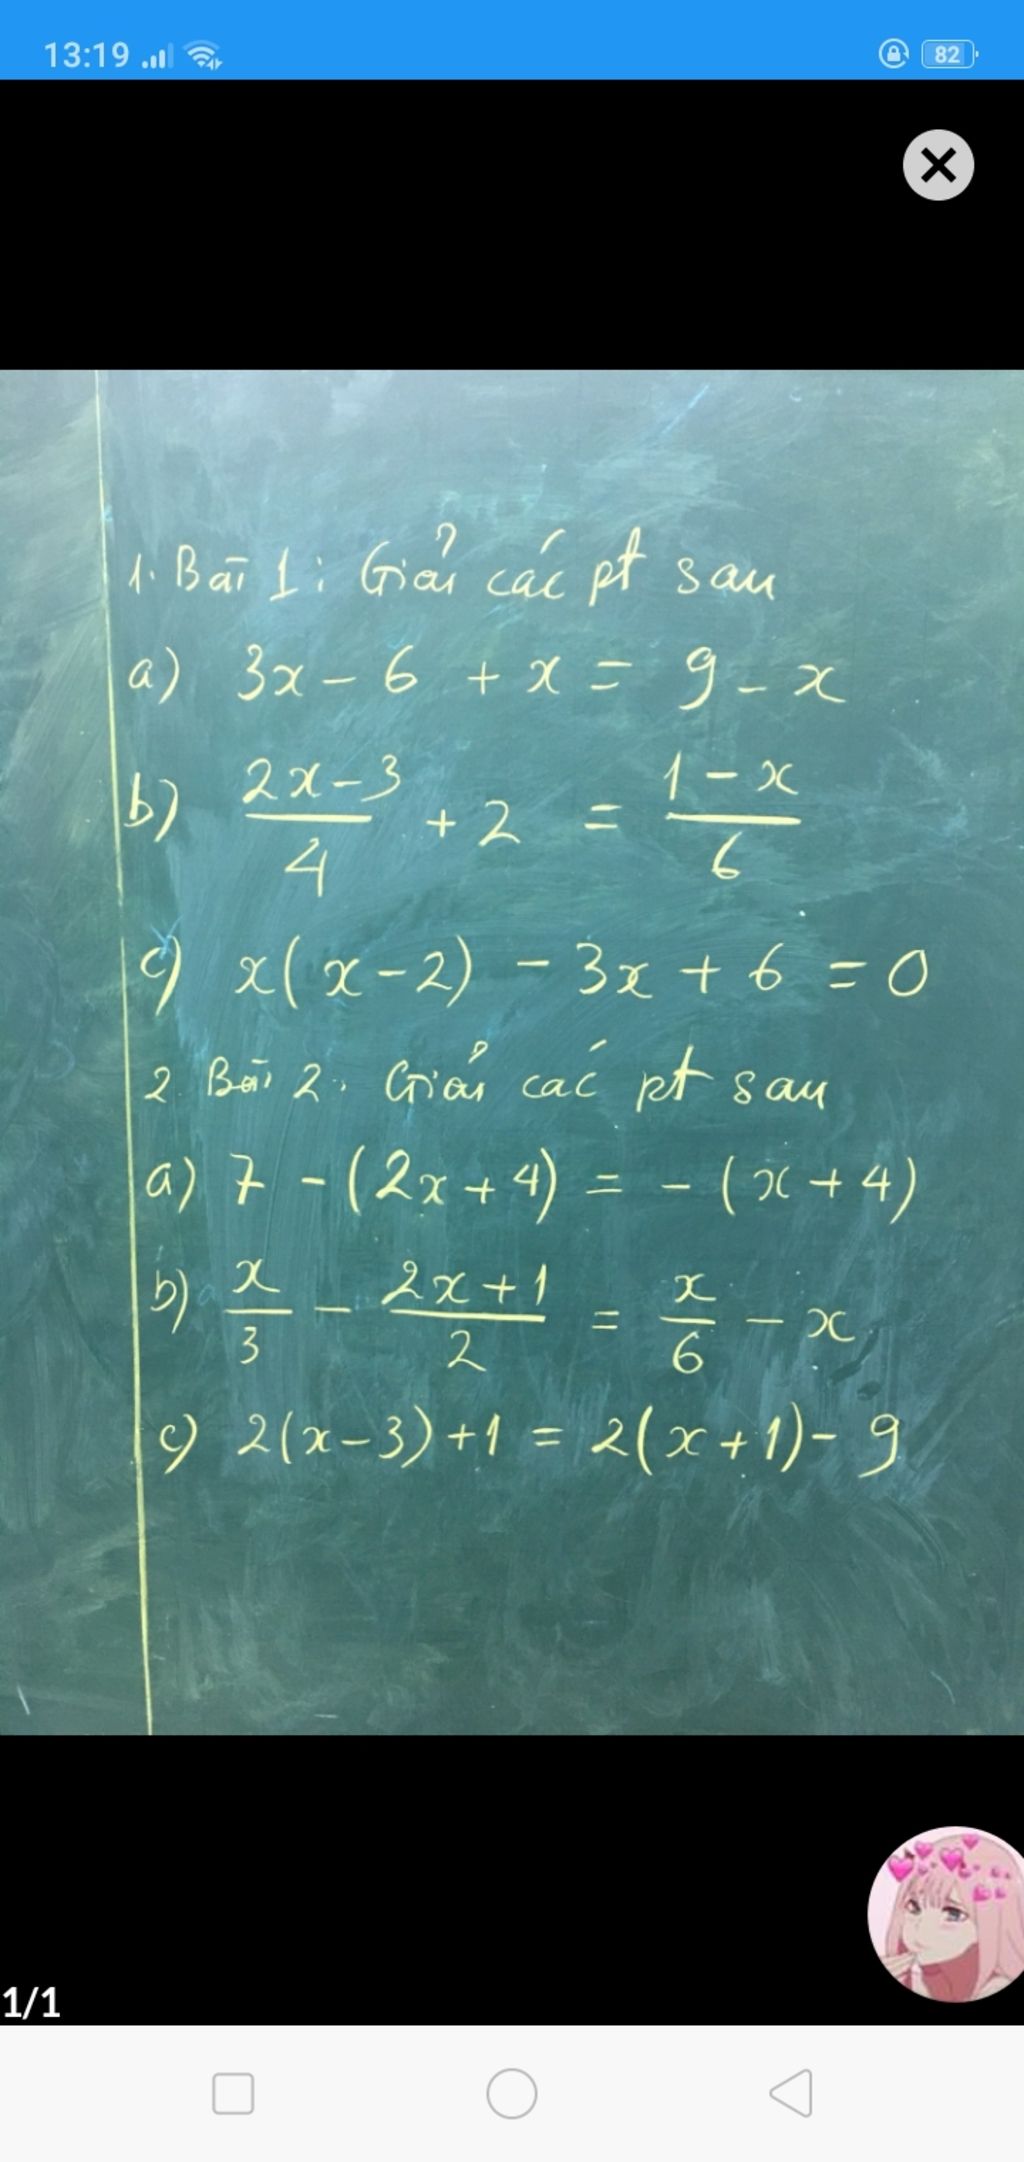 13:19
82
1. Bài 1: Giải các pt sau
a) 3x - 6 + x = 9 - x
b) \frac{2x-3}{4} + 2 = \frac{1-x}{6}
c) x(x-2) - 3x + 6 = 0
2. Bài 2. Giải các pt sau
a) 7 - (2x+4) = - (x+4)
b) \frac{x}{3} - \frac{2x+1}{2} = \frac{x}{6} - x
c) 2(x-3)+1 = 2(x+1)- 9
1/1